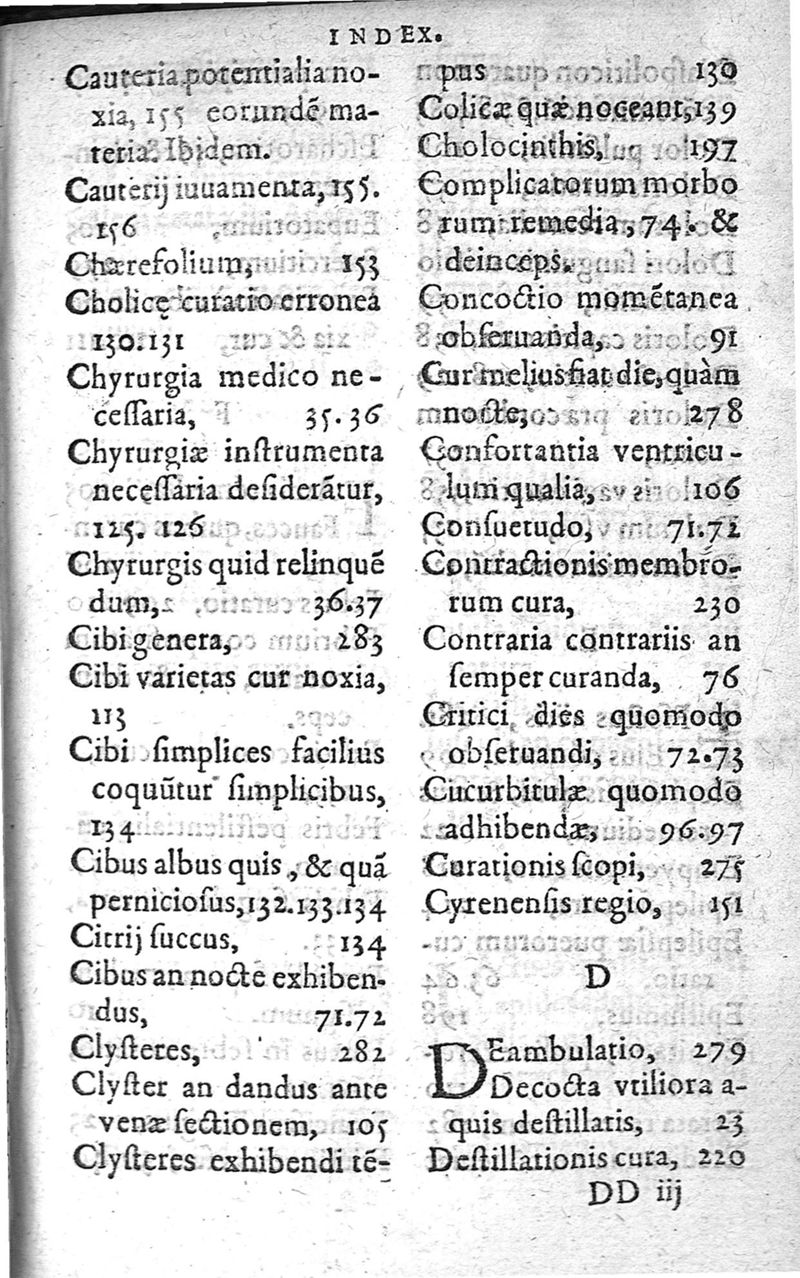 INDEX.
Cauteria potentialia no-
xia, 155 eorundē ma-
teria. Ibidem.
Cauterij iuuamenta, 155.
156
Chærefolium, 153
Cholicę curatio erronea
130.131
Chyrurgia medico ne-
ceſſaria, 35.36
Chyrurgiæ inſtrumenta
neceſſaria deſiderātur,
125. 126
Chyrurgis quid relinquē
dum, 36.37
Cibi genera, 283
Cibi varietas cur noxia,
113
Cibi ſimplices facilius
coquūtur ſimplicibus,
134
Cibus albus quis, & quā
pernicioſus, 132.133.134
Citrij ſuccus, 134
Cibus an nocte exhiben-
dus, 71.72
Clyſteres, 282
Clyſter an dandus ante
venæ ſectionem, 105
Clyſteres exhibendi tē-
pus 130
Colicæ quæ noceant, 139
Cholocinthis, 197
Complicatorum morbo
rum remedia, 74. &
deinceps.
Concoctio momētanea
obſeruanda, 91
Cur melius fiat die, quàm
nocte, 278
Confortantia ventricu-
lum qualia, 106
Conſuetudo, 71.72
Contractionis membro-
rum cura, 230
Contraria contrariis an
ſemper curanda, 76
Critici dies quomodo
obſeruandi, 72.73
Cucurbitulæ quomodo
adhibendæ, 96.97
Curationis ſcopi, 275
Cyrenenſis regio, 151
D
DEambulatio, 279
Decocta vtiliora a-
quis deſtillatis, 23
Deſtillationis cura, 220
DD iij